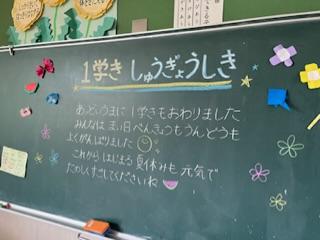 1学き しゅうぎょうしき
あっというまに 1学きもおわりました
みんなは まい日 べんきょうもうんどうも
よくがんばりました
これから はじまる 夏休みも 元気で
たのしくすごしてくださいね